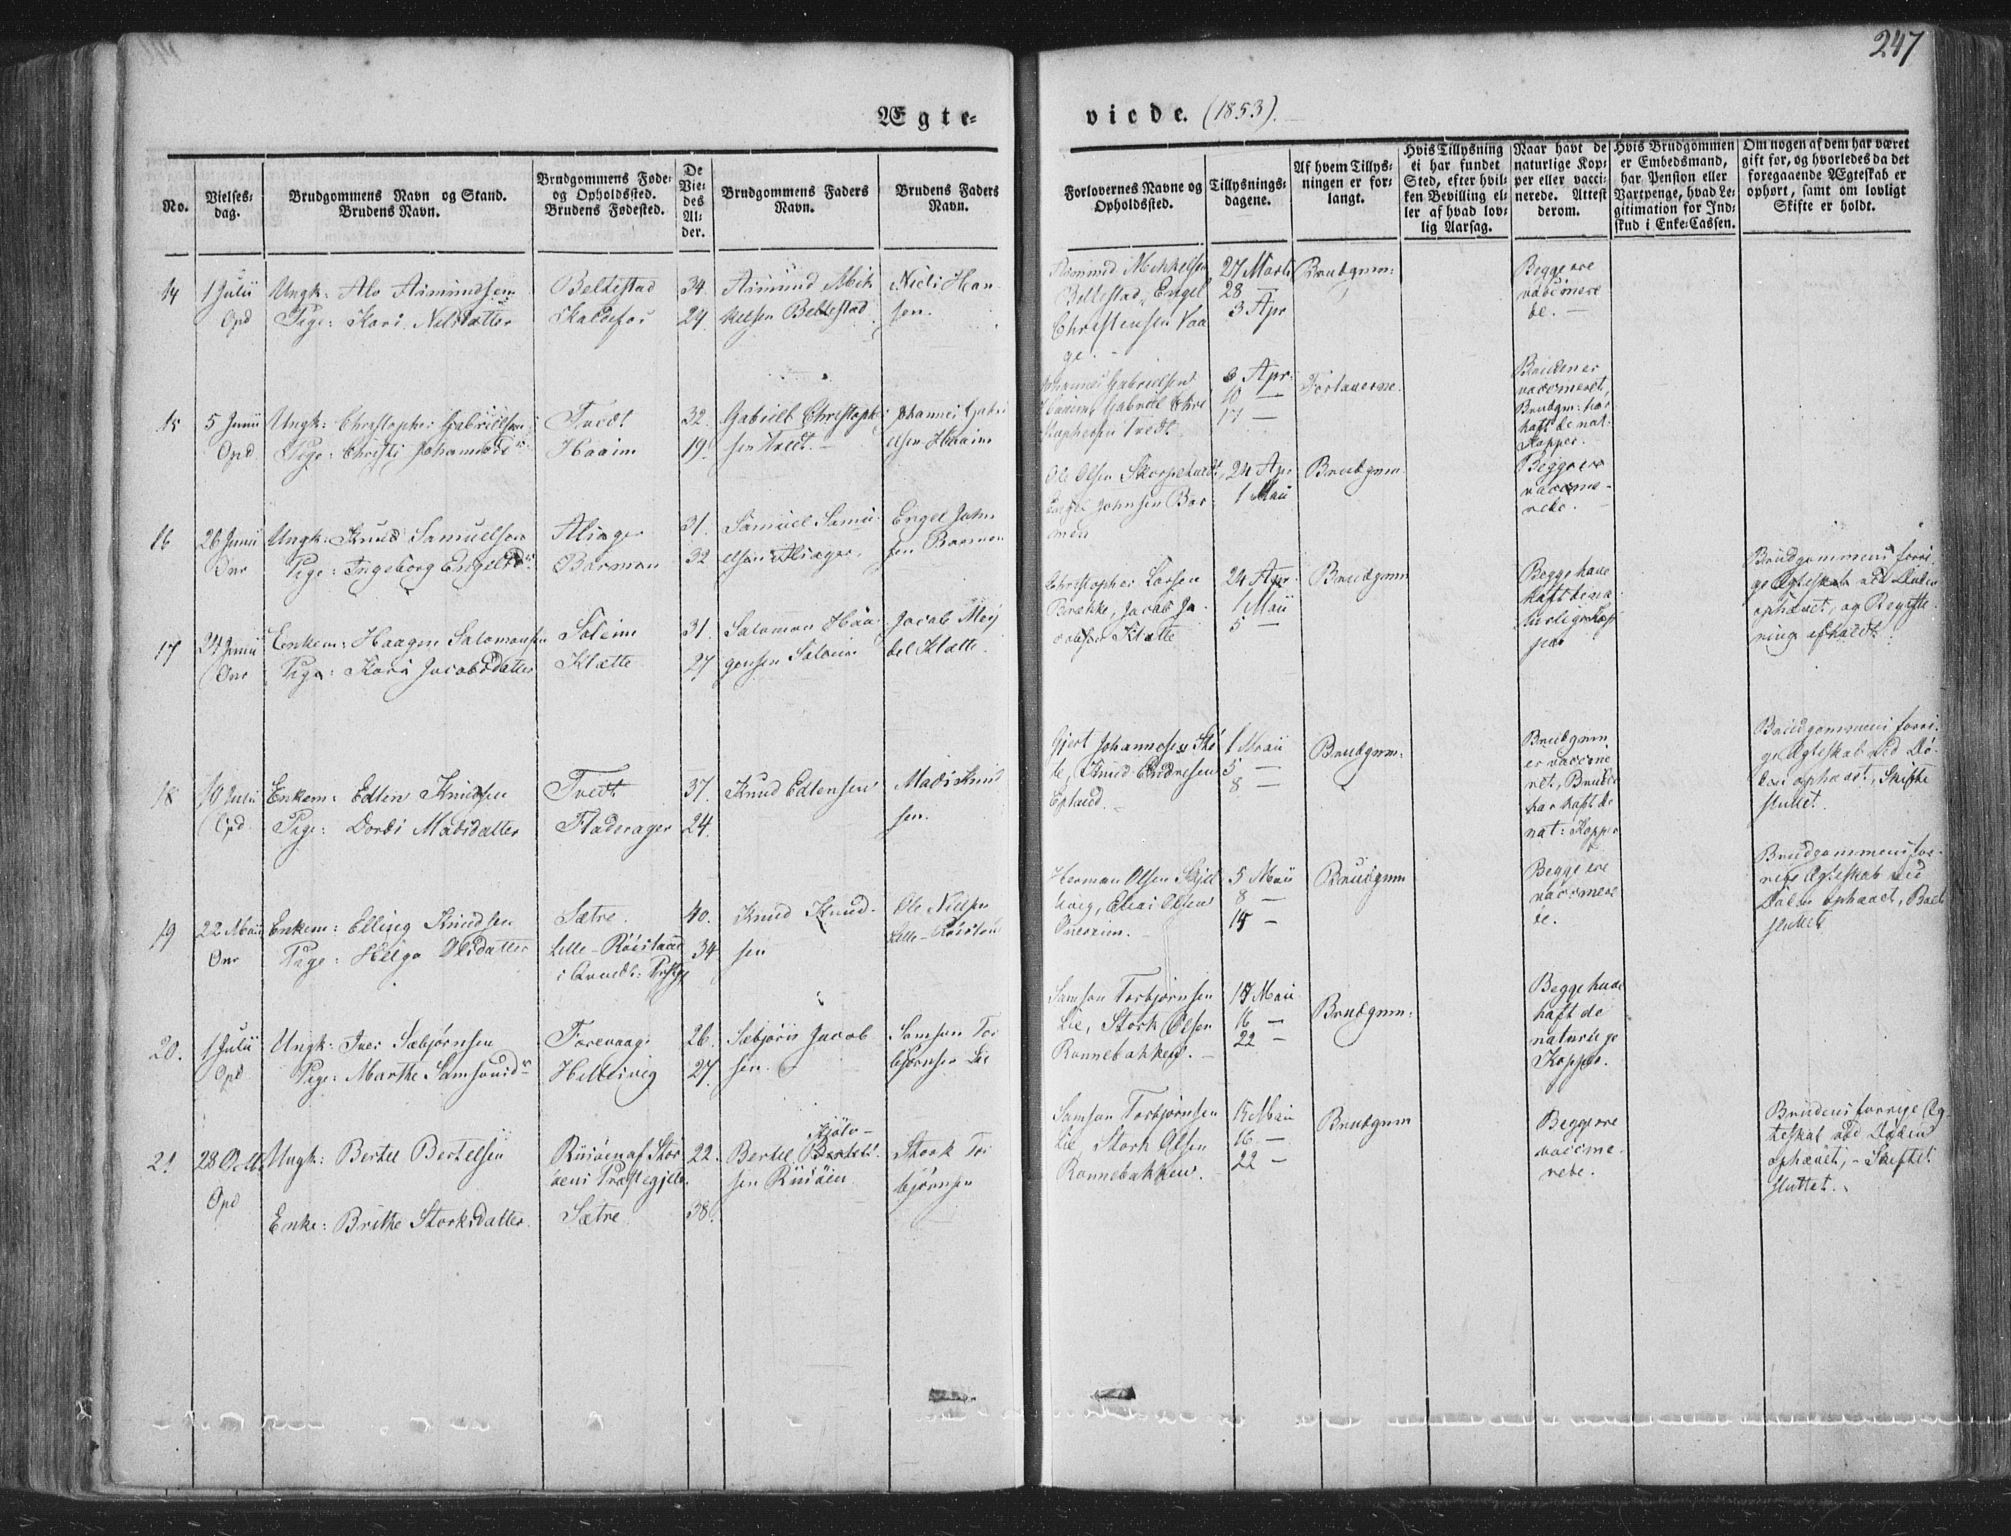 247
Ægte-
viede. (1853).
No.
Vielses-
dag.
Brudgommens Navn og Stand.
Brudens Navn.
Brudgommens Føde-
og Opholdssted.
Brudens Fødested.
De
Vie-
des
Al-
der.
Brudgommens Faders
Navn.
Brudens Faders
Navn.
Forlovernes Navne og
Opholdssted.
Tillysnings-
dagene.
Af hvem Tillys-
ningen er for-
langt.
Hvis Tillysning
ei har fundet
Sted, efter hvil-
ken Bevilling el-
ler af hvad lov-
lig Aarsag.
Naar havt de
naturlige Kop-
per eller vacci-
nerede. Attest
derom.
Hvis Brudgommen
er Embedsmand,
har Pension eller
Vartpenge, hvad Le-
gitimation for Ind-
skud i Enke-Cassen.
Om nogen af dem har været
gift før, og hvorledes da det
foregaaende Ægteskab er
ophørt, samt om lovligt
Skifte er holdt.
14
1 Julii
Opd
Ungk: Alv Asmundsen
Pige: Kari Nilsdatter
Beltestad
34.
24.
Asmund Mik
kelsen Beltestad
Niels Han
sen.
Asmund Mikkelsen
Beltestad, Engel
Christensen Vaa
ge.
27 Marts
28 —
3 Apr
Brudgom:
Begge ere
vaccinere
de. —
15
5 Junii
Opd.
Ungk: Christopher Gabrielsen
Pige: Christi Johannesd
Tvedt
Haaim
32.
19.
Gabriel Christopher
sen Tvedt. —
Johannes Gabri
elsen Haaim
Johannes Gabrielsen
Haaim, Gabriel Chri
stophersen Tvedt.
3 Apr:
10 —
17 —
Forloverne.
Bruden er
vaccineret,
Brudgm: har
haft de nat:
Kopper.
16
26 Junii
Ungk: Knud Samuelsen
Pige: Ingeborg Engelsd
Alsager
Barman
31.
32
Samuel Samu
elsen Alsager.
Engel John
sen Barman
Ole Olsen Skorpetvedt,
Engel Johnsen Bar
men
24 Apr
1 Maii
Brudgom
Begge ere
vaccine-
rede.
17
24 Junii
Enkem: Haagen Salomonsen
Pige: Kari Jacobsdatter
Soleim
Klætte
31.
27
Salomon Haa
gensen Soleim
Jacob Mey
del Klætte.
Christopher Larsen
Brekke, Jacob Ja
cobsen Klætte
24 Apr.
1 Maii
5 —
Brudgom
Begge have
haft de na
turlige Kop
per
Brudgommens forri
ge Ægteskab ved Døden
ophævet, og Registre-
ring afholdt.
18
10 Julii
Opd.
Enkem: Edlen Knudsen
Pige: Dordi Madsdatter
Tvedt
Fladerager
37.
24.
Knud Edlensen
Mads Knud
sen.
Gjert Johannesen Stø
le, Knud Endresen
Epland. —
1 Maii
5 —
8 —
Brudgom.
Brudgom
er vaccine
ret, Bruden
har haft de
nat: Kopper
Brudgommens forri
ge Ægteskab ved Dø-
den ophævet, Skifte
sluttet.
19
22 Maii
Enkem: Elling Knudsen
Pige: Helga Olsdatter
Sætre.
Lille-Røistland
40.
34
Knud Knud-
sen
Ole Nielsen
Lille-Røistland
Herman Olsen
Elias Olsen
5 Maii
8 —
15 —
Brudgom
Begge ere
vaccinere
de.
Brudgommens for-
rige Ægteskab ved
Døden ophævet,
sluttet
20.
1 Julii
Opd.
Ungk: Iver Sæbjørnsen
Pige: Marthe Samsonsd
Torevaag
Hellesvig
26.
27.
Sæbjørn Jacob
sen.
Samson Tor
bjørnsen Lie
Samson Torbjørnsen
Lie, Stork Olsen
Rønnebakken. —
15 Maii
16 —
22 —
Brudgom:
Begge have
haft de
naturlige
Kopper.
21
28 Octb
Opd
Ungk: Bertel Bertelsen
Enke: Brithe Storksdatter
Sætre
22.
38.
Bertel
Stork Tor
bjørnsen
Samson Torbjørnsen
Lie, Stork Olsen
Rønnebakken. —
15 Maii
16 —
22 —
Brudgom
Begge ere
vaccine-
rede.
Brudens forrige Æg-
teskab ved Døden
ophævet, – Skiftet
sluttet.